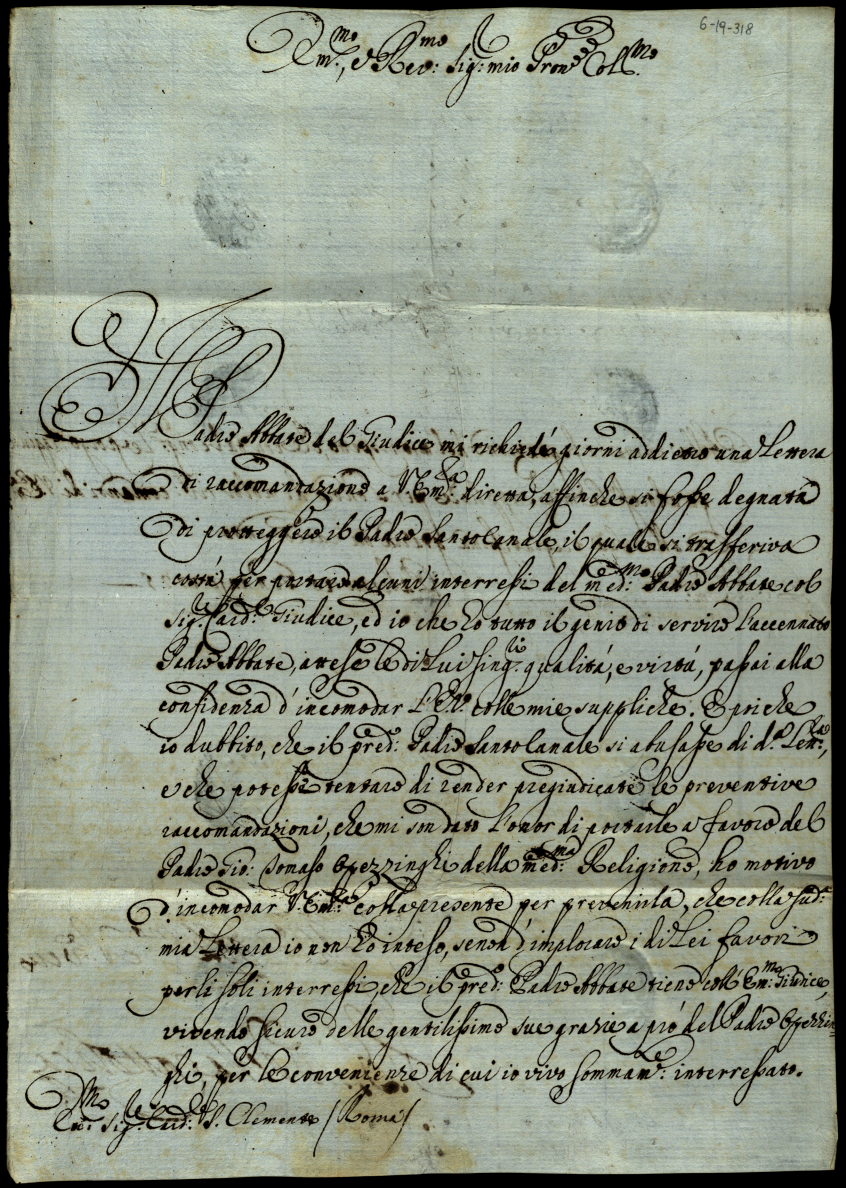 6-19-318
Em.mo, e Rev.mo Sig: mio Pron Coll.mo
Il Padre Abbate del Giudice mi richiedé giorni addietro una Lettera
di raccomandazione a V. Em.za diretta, affinche si fosse degnata
di proteggere il Padre Santo Canale, il quale si trasferiva
costá per portare alcuni interressi del med.mo Padre Abbate col
Sig.r Card.le Giudice, ed io che hó tutto il genio di servire l'accennato
Padre Abbate, attese le di Lui sing.li qualitá, e virtá, passai alla
confidenza d'incomodar l'E.V. colle mie suppliche. E poiche
io dubbito, che il pred: Padre Santo Canale si abusasse di d.a Lett.ra,
e che potesse tentare di render pregiudicate le preventive
raccomandazioni, che mi son dato l'onor di portarle a favore del
Padre Gio: Tomaso della med.ma Religione, ho motivo
d'incomodar V. Em.za colla presente per prevenirla, che colla sud.a
mia Lettera io non hó inteso, senon d'implorare i di Lei favori
per li soli interressi, che il pred: Padre Abbate tiene coll'Em.mo Giudice,
vivendo sicuro delle gentilissime sue grazie a pró del Padre
ghi, per le convenienze di cui io vivo sommam.e interressato.
Em.mo Sig.r Card.le S. Clemente /Roma/